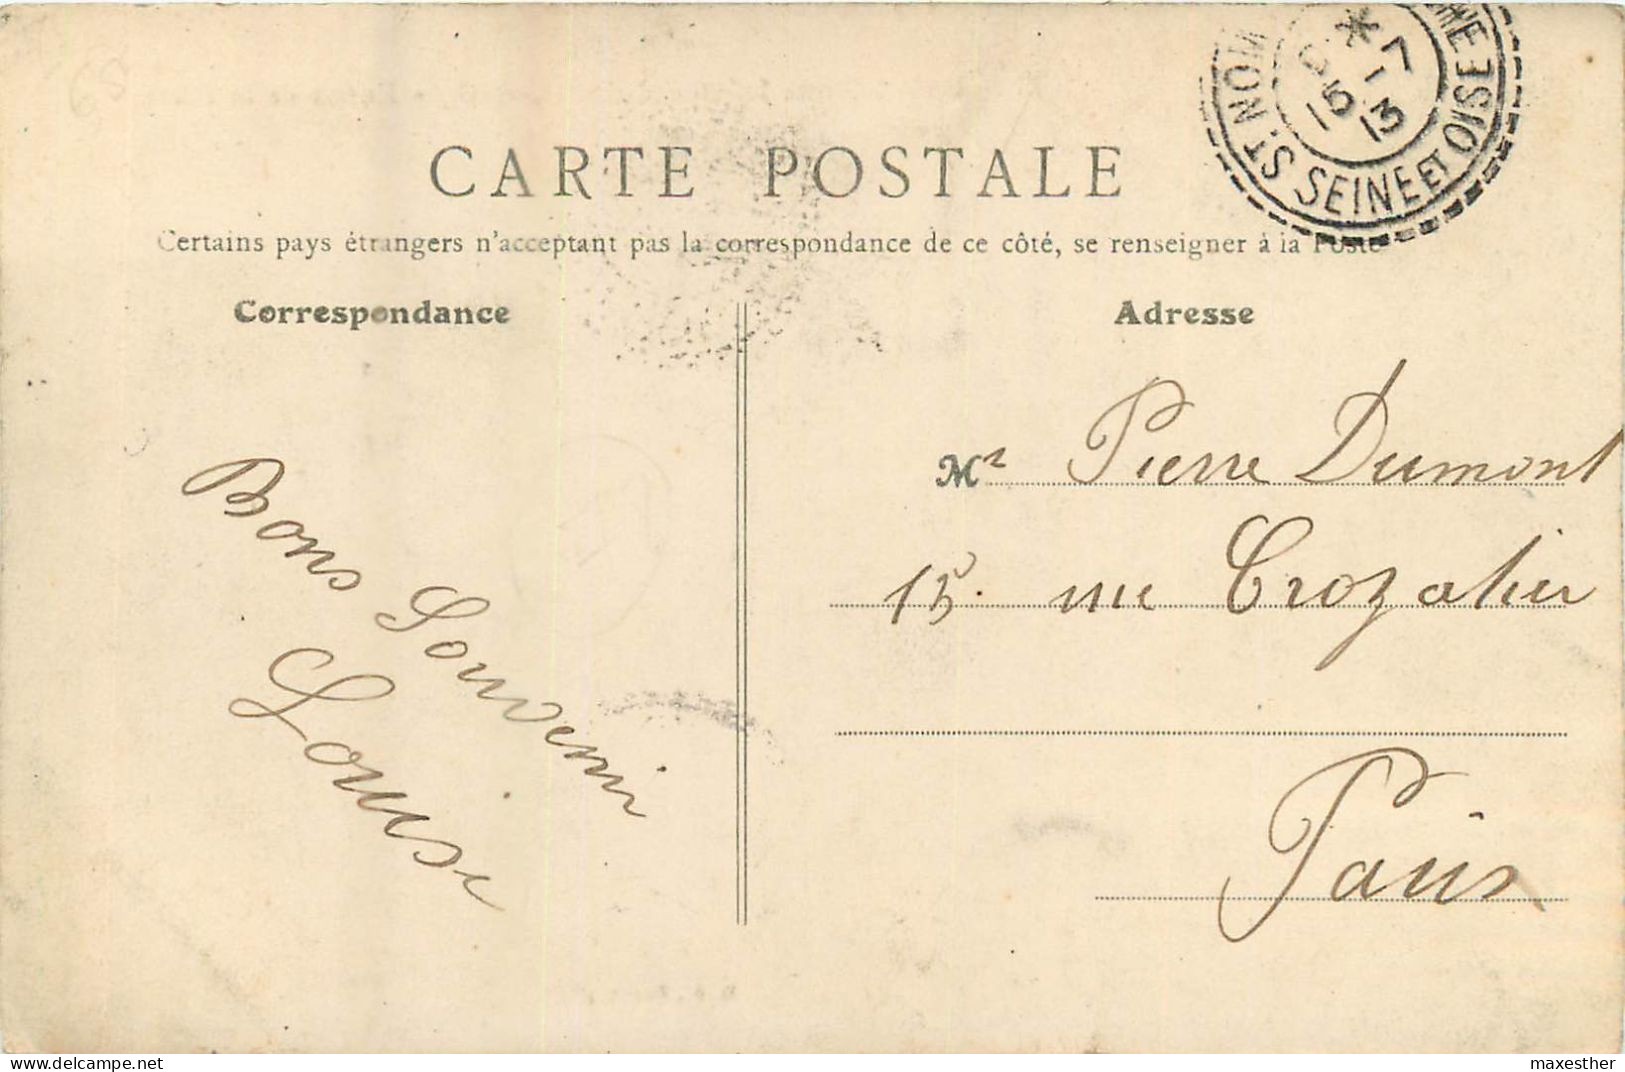 CARTE POSTALE
Certains pays étrangers n'acceptant pas la correspondance de ce côté, se renseigner à la Poste
Correspondance
Adresse
ST. NOM
SEINE ET OISE
7
15 13
Mr Pierre Dumont
15. rue Crozatier
Paris
Bons Souvenir
Louise
www.delcampe.net
maxesther